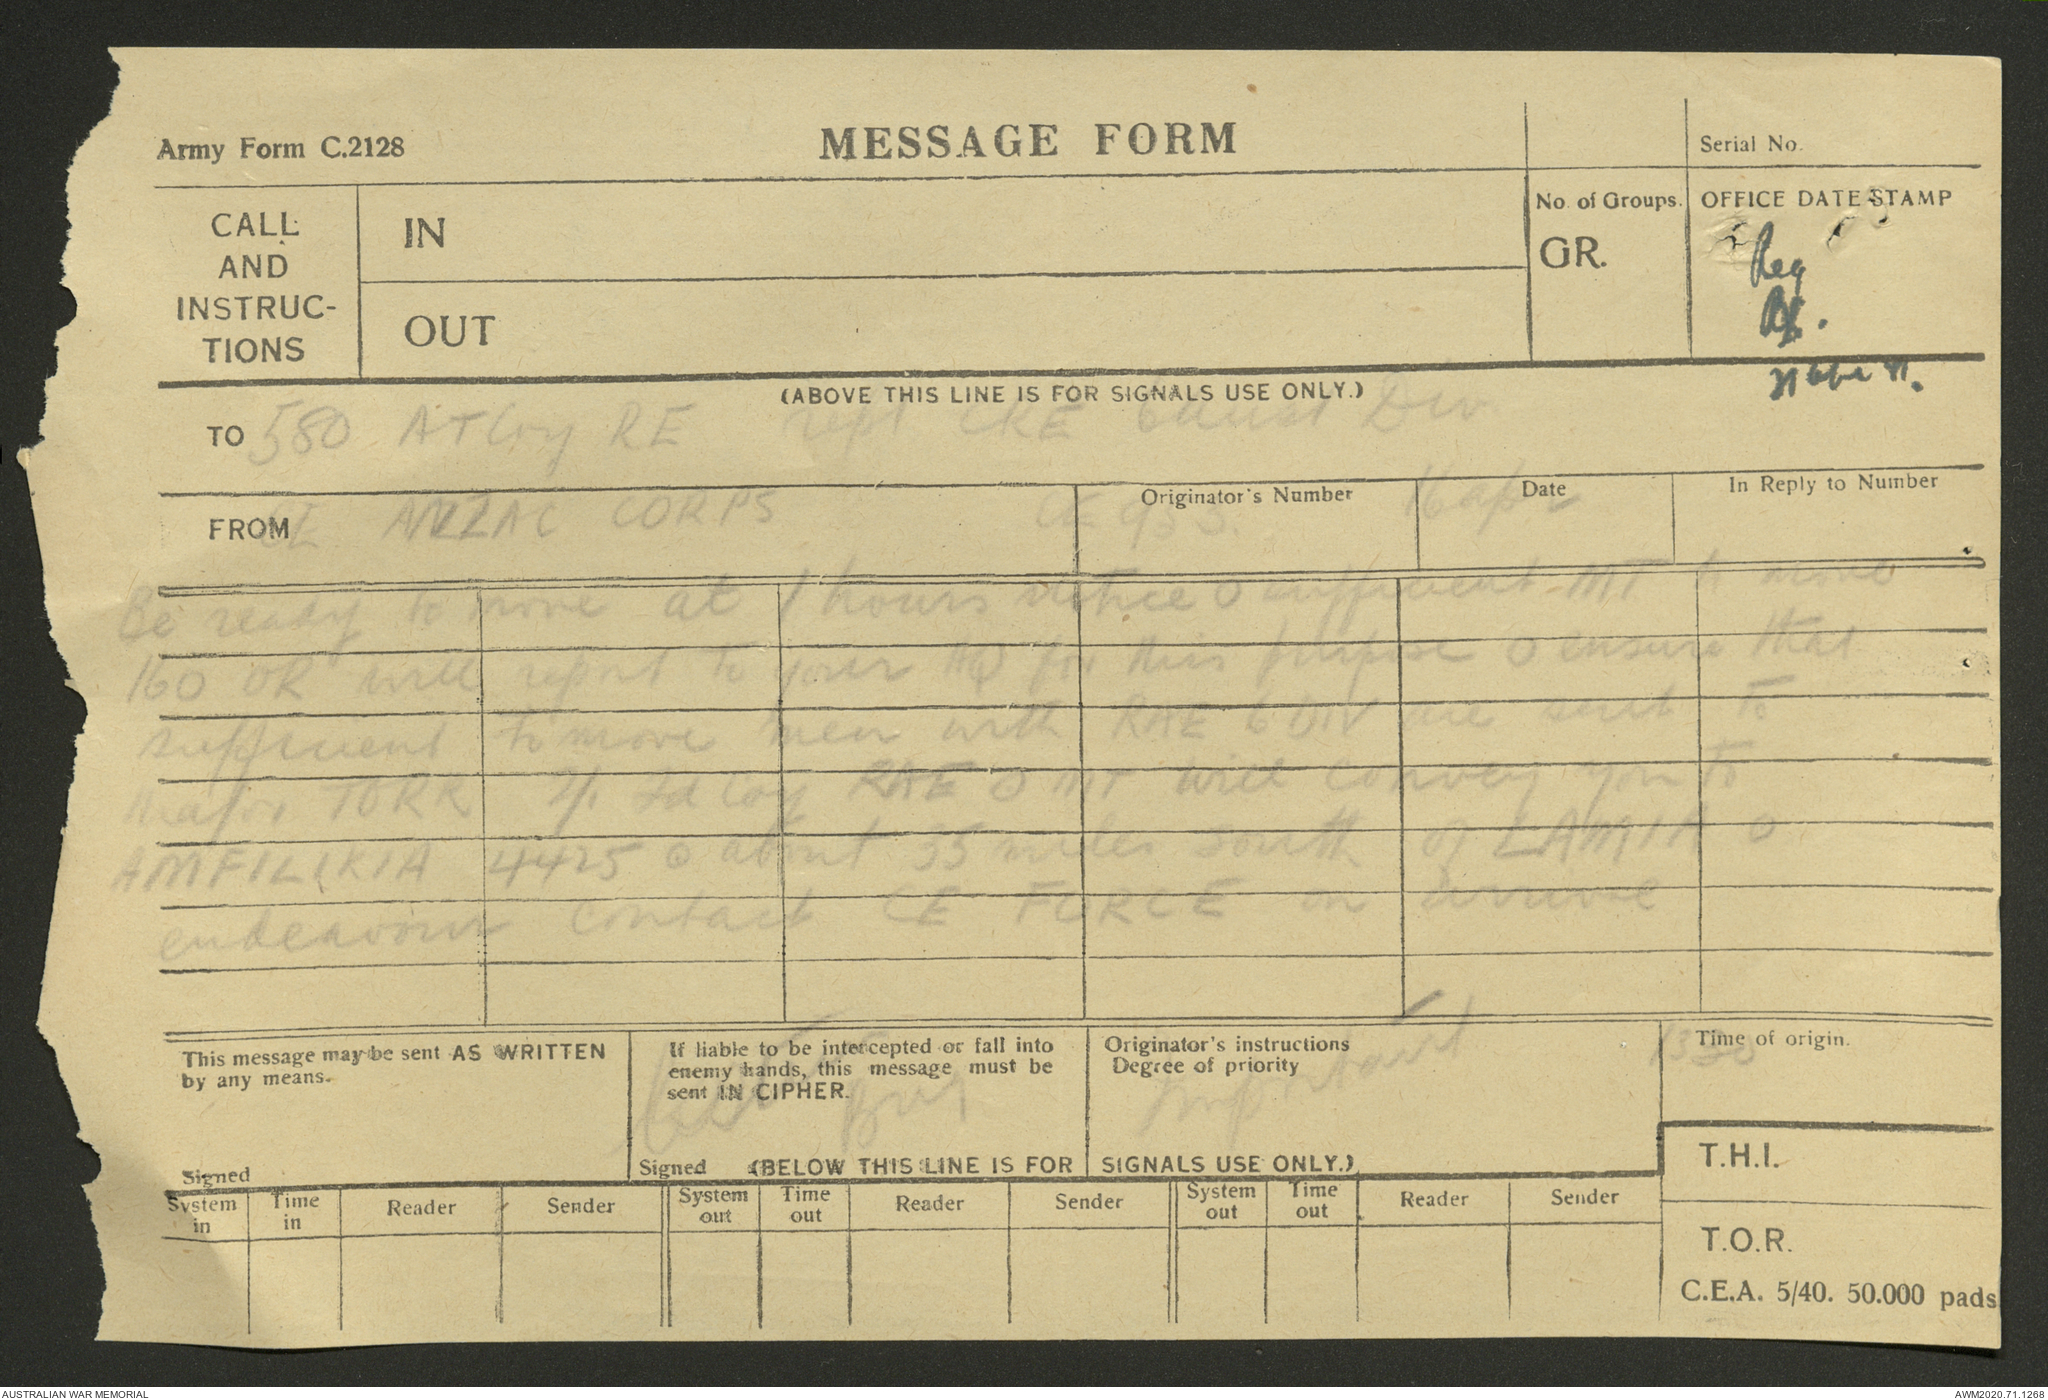 Army Form C.2128
MESSAGE FORM
Serial No.
CALL
AND
INSTRUC-
TIONS
IN
OUT
No. of Groups.
GR.
OFFICE DATE STAMP
(ABOVE THIS LINE IS FOR SIGNALS USE ONLY.)
TO 580 AT Coy RE rept CRE 6 Aust Div
FROM CE ANZAC CORPS
Originator's Number
CE 933.
Date
16 Apr
In Reply to Number
Be ready to move at 1 hours notice O sufficient MT to move
160 OR will report to your HQ for this purpose O ensure that
sufficient to move men with RAE 6 DIV are sent to
Major TORR 2/1 Fd Coy RAE O MT will convey you to
AMFILIKIA 4425 O about 35 miles south of LAMIA O
endeavour contact CE FORCE on arrival
This message may be sent AS WRITTEN
by any means.
Signed
If liable to be intercepted or fall into
enemy hands, this message must be
sent IN CIPHER.
Signed
Originator's instructions
Degree of priority
Important
Time of origin.
1330
(BELOW THIS LINE IS FOR SIGNALS USE ONLY.)
T.H.I.
System in
Time in
Reader
Sender
System out
Time out
Reader
Sender
System out
Time out
Reader
Sender
T.O.R.
C.E.A. 5/40. 50.000 pads
AUSTRALIAN WAR MEMORIAL
AWM2020.71.1268